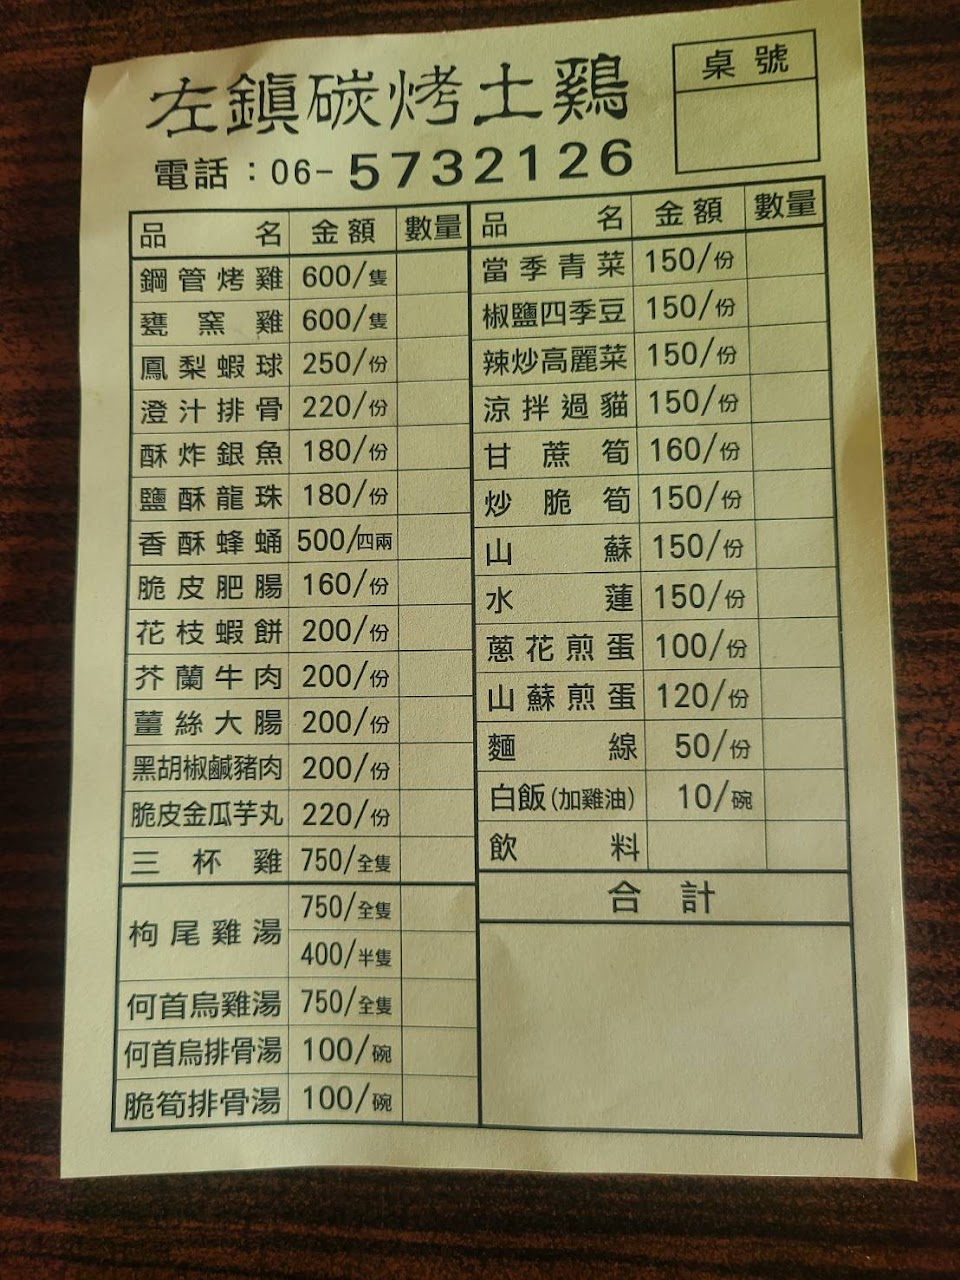 左鎮碳烤土鷄
桌號
電話：06-5732126
品名 金額 數量
鋼管烤雞 600/隻
甕窯雞 600/隻
鳳梨蝦球 250/份
澄汁排骨 220/份
酥炸銀魚 180/份
鹽酥龍珠 180/份
香酥蜂蛹 500/四兩
脆皮肥腸 160/份
花枝蝦餅 200/份
芥蘭牛肉 200/份
薑絲大腸 200/份
黑胡椒鹹豬肉 200/份
脆皮金瓜芋丸 220/份
三杯雞 750/全隻
枸尾雞湯 750/全隻
400/半隻
何首烏雞湯 750/全隻
何首烏排骨湯 100/碗
脆筍排骨湯 100/碗
品名 金額 數量
當季青菜 150/份
椒鹽四季豆 150/份
辣炒高麗菜 150/份
涼拌過貓 150/份
甘蔗筍 160/份
炒脆筍 150/份
山蘇 150/份
水蓮 150/份
蔥花煎蛋 100/份
山蘇煎蛋 120/份
麵線 50/份
白飯(加雞油) 10/碗
飲料
合計